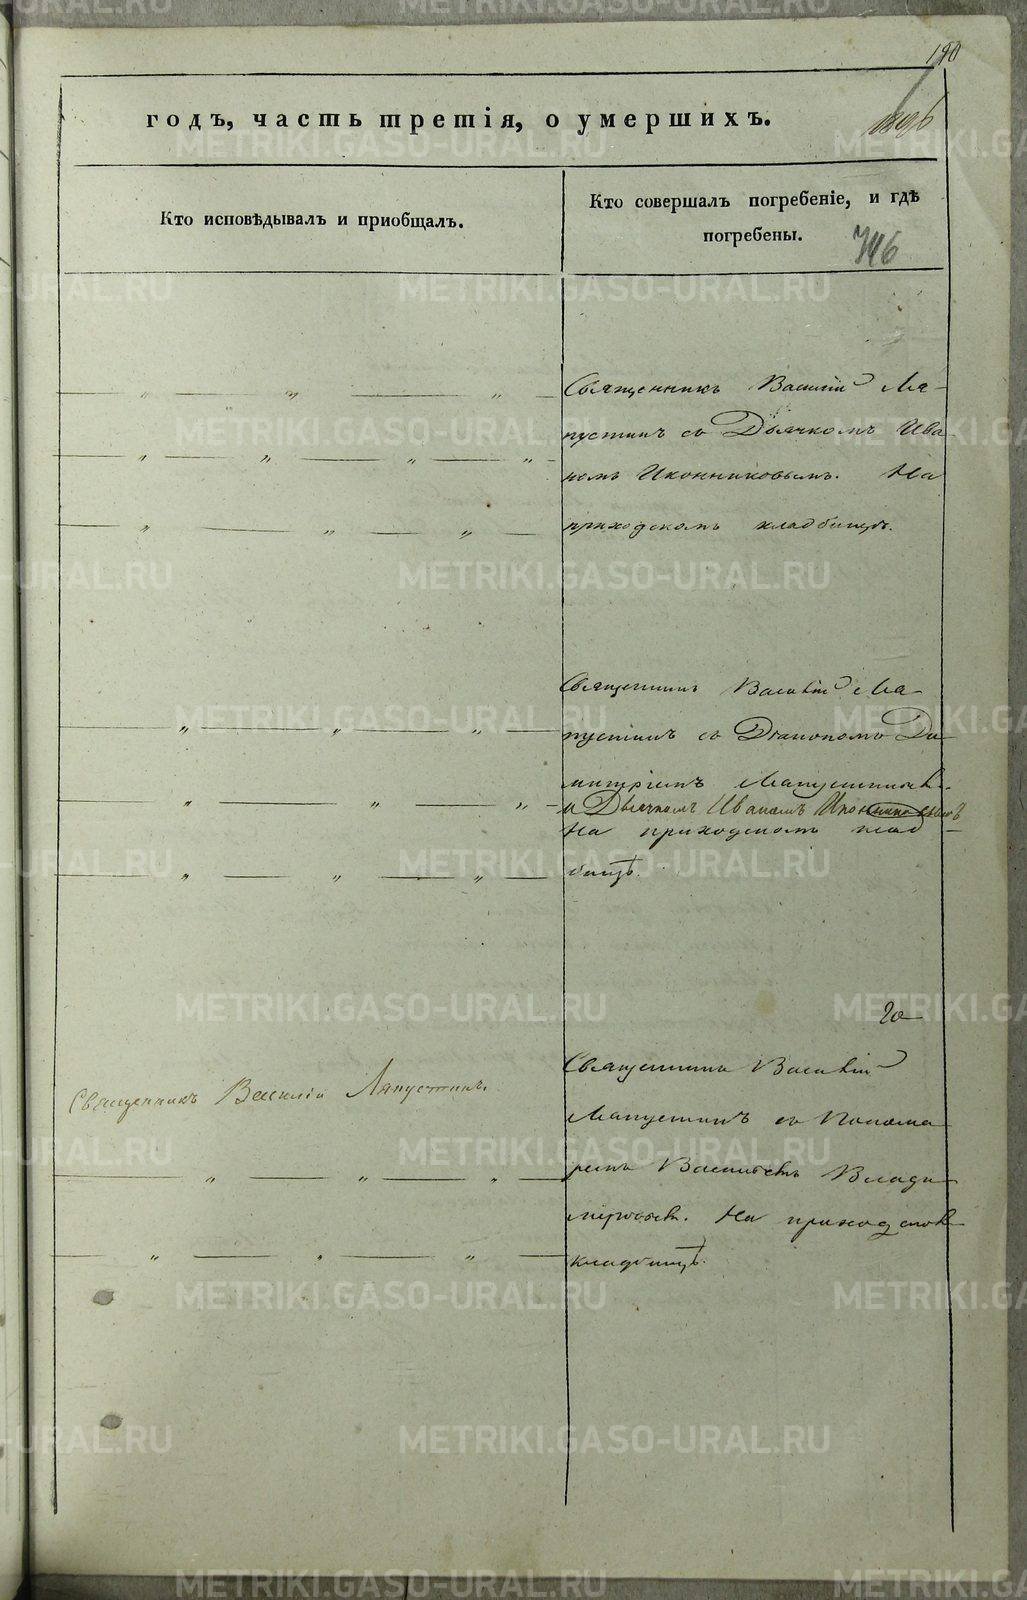 190
годъ, часть третія, о умершихъ.
Кто исповѣдывалъ и приобщалъ.
Кто совершалъ погребеніе, и гдѣ
погребены.
746
Священникъ Василій Ля-
пустинъ со Дьячкомъ Ива
номъ Иконниковымъ. На
приходскомъ кладбищѣ.
Священникъ Василій Ля-
пустинъ со Діакономъ Ди
митріемъ Ляпустинымъ
и Дьячкомъ Иваномъ Иконниковымъ
На приходскомъ клад-
бищѣ.
Священникъ Василій Ляпустинъ.
Священникъ Василій
Ляпустинъ со Понома
ремъ Василіемъ Влади
міровымъ. На приходскомъ
кладбищѣ.
METRIKI.GASO-URAL.RU